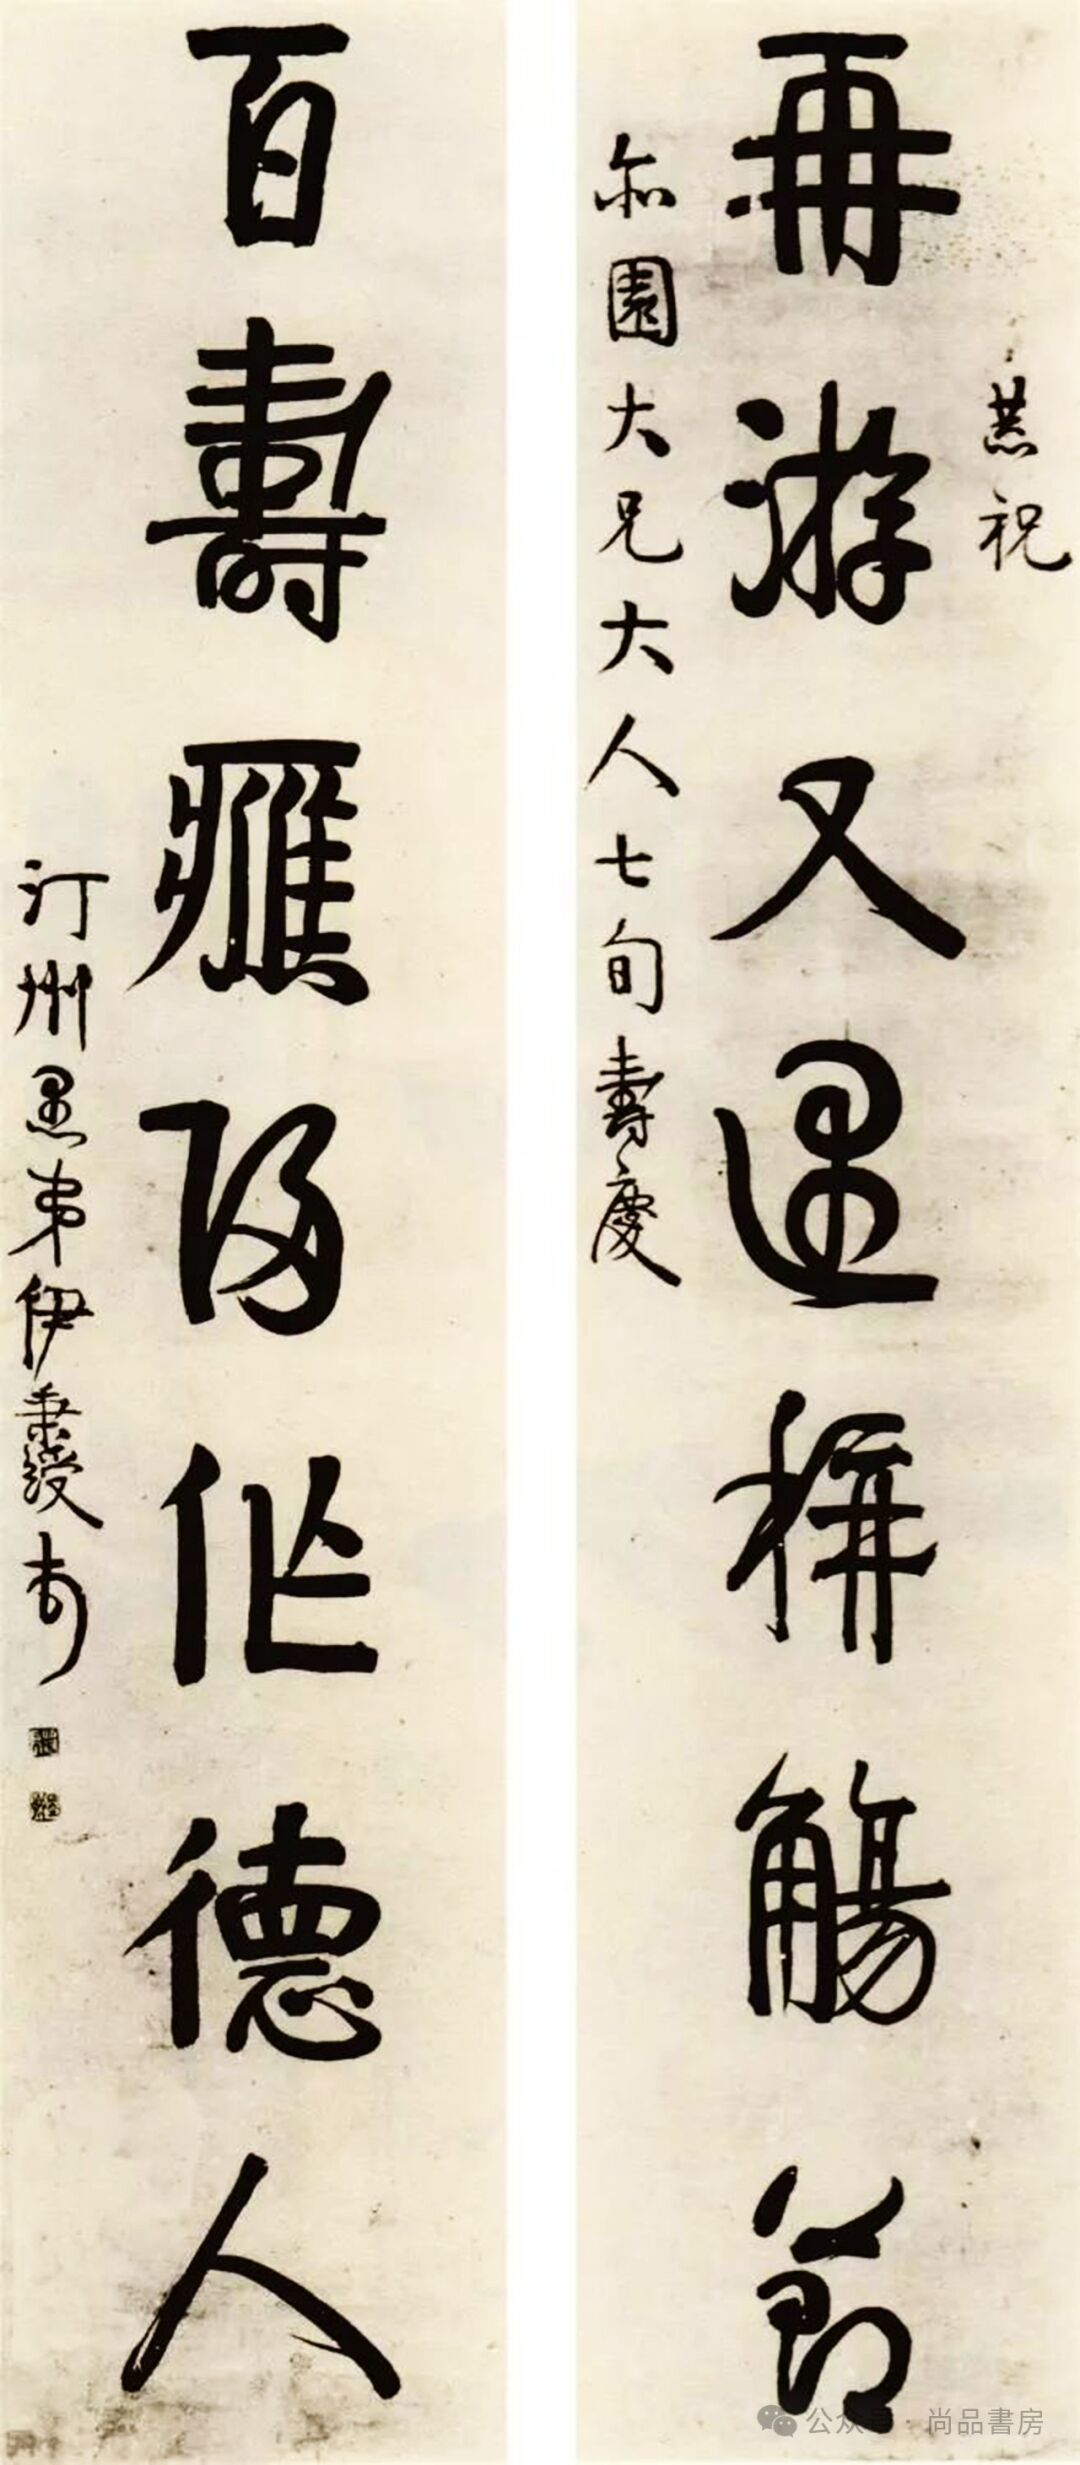 恭祝
再游又遇稱觴節
亦園大兄大人七旬壽慶
百壽應歸作德人
汀州愚弟伊秉綬
公众号 · 尚品書房